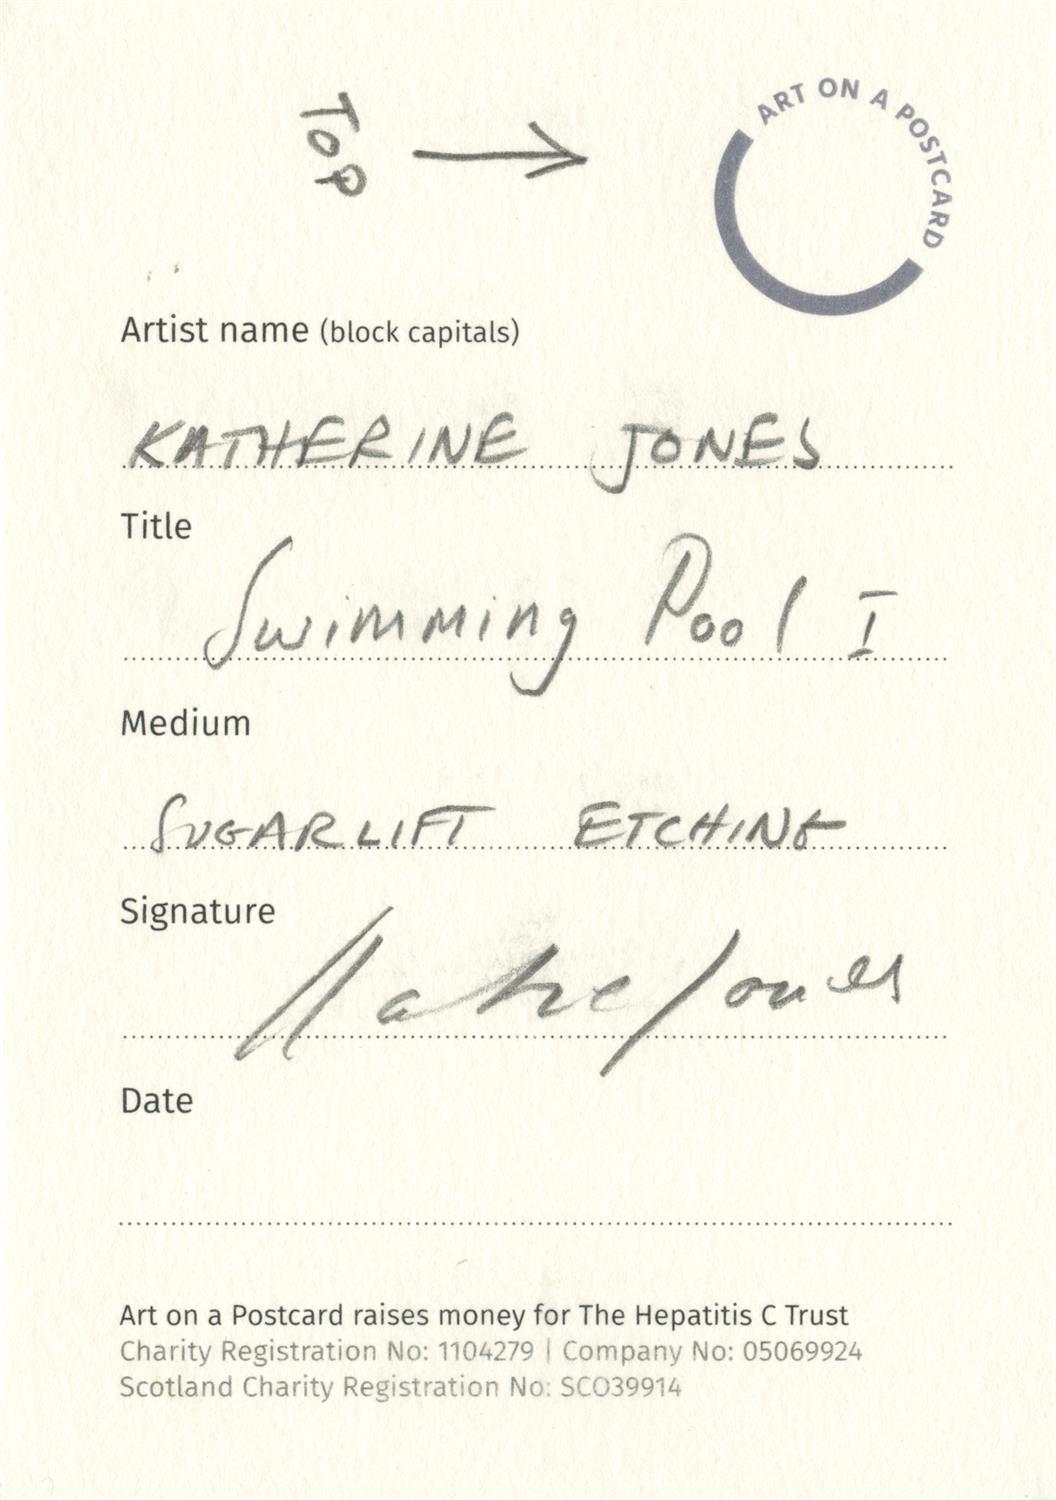 TOP
ART ON A POSTCARD
Artist name (block capitals)
KATHERINE JONES
Title
Swimming Pool I
Medium
SUGARLIFT ETCHING
Signature
Katie Jones
Date
Art on a Postcard raises money for The Hepatitis C Trust
Charity Registration No: 1104279 | Company No: 05069924
Scotland Charity Registration No: SCO39914